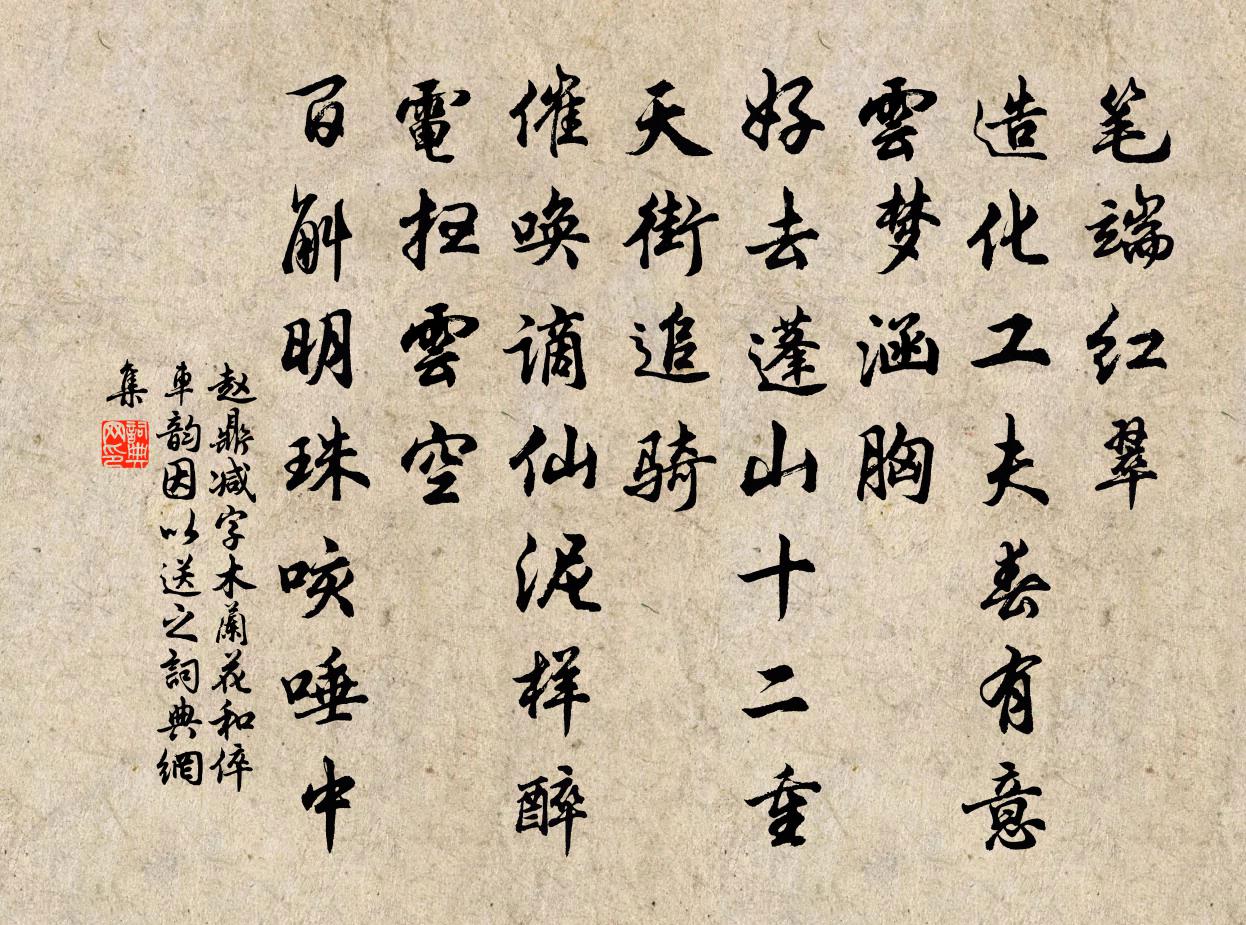 笔端红翠
造化工夫春有意
雲梦涵胸
好去蓬山十二重
天街追骑
催唤谪仙泥样醉
電扫雲空
百斛明珠咳唾中
赵鼎减字木蘭花和倅
車韵因以送之詞典網
集
詞典
网印